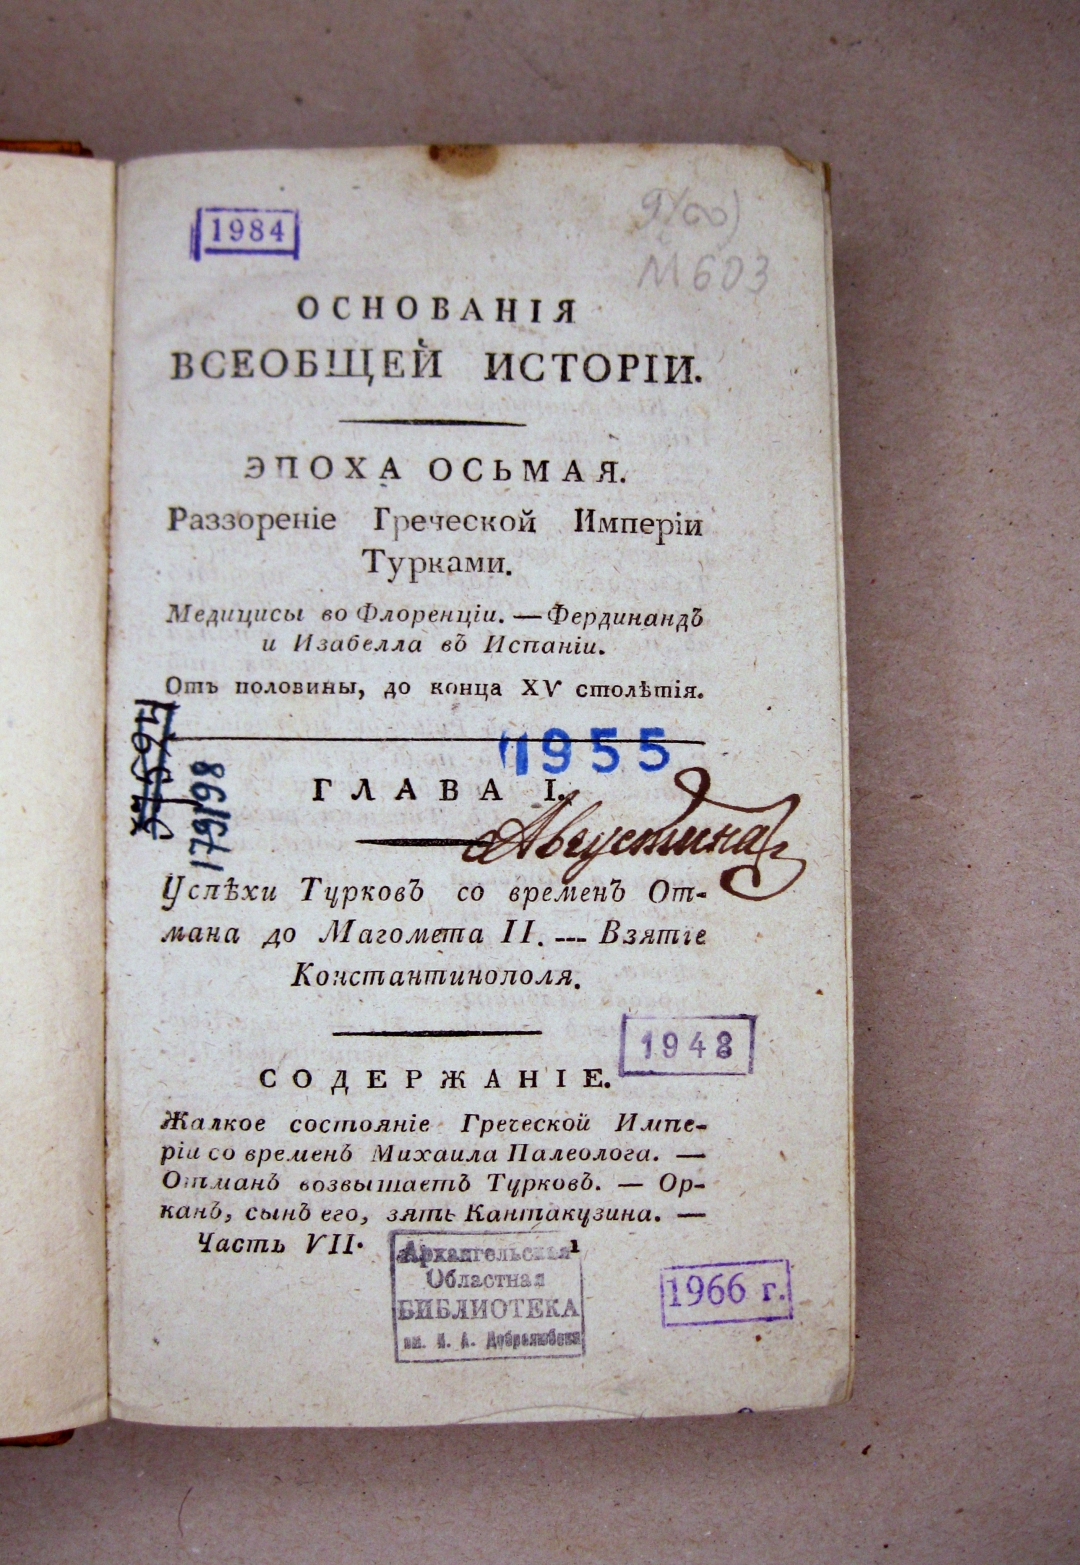 1984
9(∞)
М603
ОСНОВАНІЯ
ВСЕОБЩЕЙ ИСТОРІИ.
ЭПОХА ОСЬМАЯ.
Раззореніе Греческой Имперіи
Турками.
Медицисы во Флоренціи. — Фердинандъ
и Изабелла въ Испаніи.
Отъ половины, до конца XV столѣтія.
179198
1955
ГЛАВА I.
Августина
Успѣхи Турковъ со временъ От-
мана до Магомета II. --- Взятіе
Константинополя.
1948
СОДЕРЖАНІЕ.
Жалкое состояніе Греческой Импе-
ріи со временъ Михаила Палеолога. —
Отманъ возвышаетъ Турковъ. — Ор-
канъ, сынъ его, зять Кантакузина. —
Часть VII. 1
Архангельская
Областная
БИБЛИОТЕКА
им. Н. А. Добролюбова
1966 г.